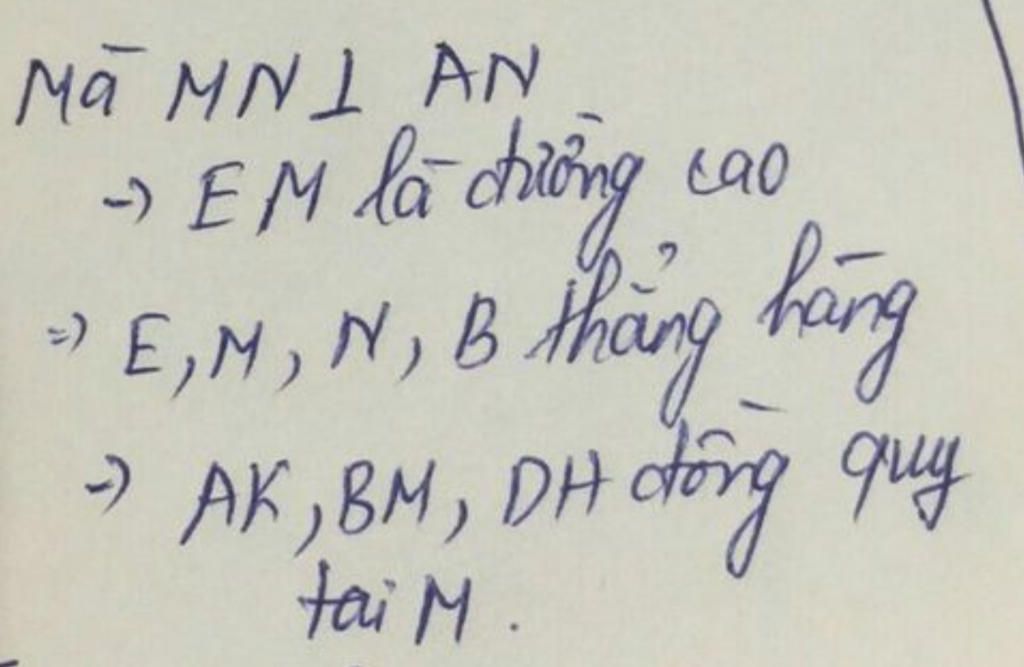 Mà MN ⊥ AN
-> EM là đường cao
=> E, M, N, B thẳng hàng
-> AK, BM, DH đồng quy
tai M.